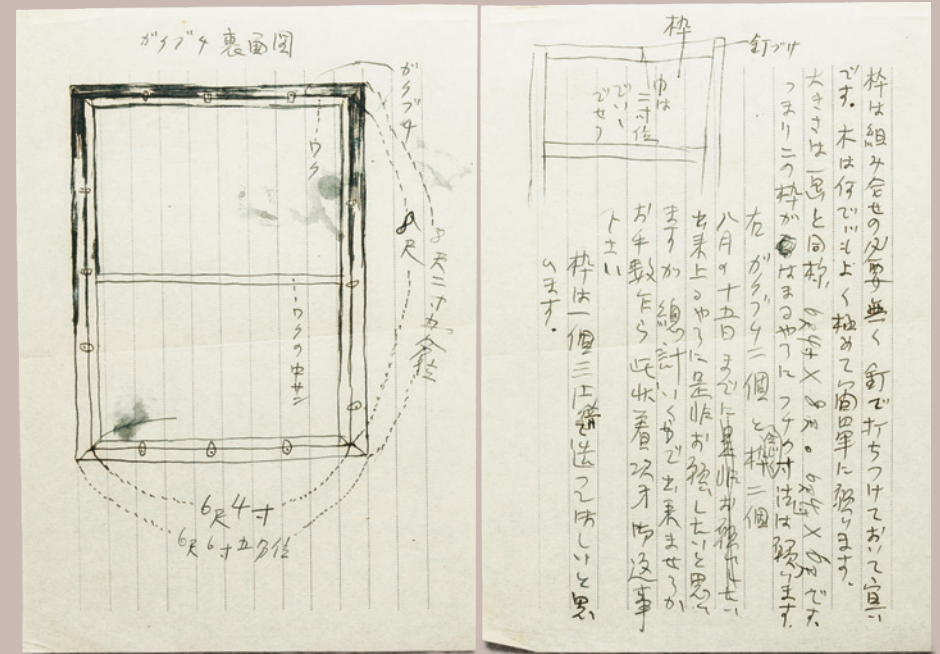 ガクブチ裏面図
ガクブチ
ワク
8尺
8尺二寸五分位
ワクの中サン
6尺4寸
6尺6寸五分位
枠
釘づけ
巾は
二寸位
でいい
でせう
枠は組み合せの必要無く 釘で打ちつけておいて宜い
です。木は何でもよく極めて簡単に願ひます。
大きさは 裏と同様、6尺4寸×8尺。です。
つまりこの枠が はまるやうに フチの寸法は願ひます。
右 ガクブチ二個と枠二個
八月の十五日までに
出来上るやうに是非お願ひしたいと思ひ
ますが 総計いくらで出来ませうか
お手数乍ら此状着次才御返事
下さい
枠は一個 送つてほしいと思
います。